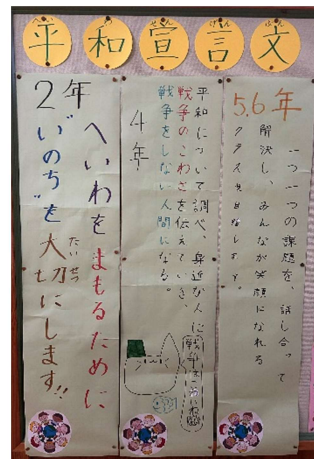 平和宣言文
へい わ せん げん ぶん
5.6年
一つ一つの課題を、話し合って
解決し、みんなが笑顔になれる
クラスを目指します。
4年
平和について調べ、身近な人に
戦争のこわさを伝えていき、
戦争をしない人間になる。
2年
へいわをまもるために
"いのち"を大切にします!!
たいせつ